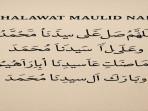 SHALAWAT MAULID NABI
اللهم صل على سيدنا محمد
وعلى آل سيدنا محمد
كما صليت على سيدنا إبراهيم
وبارك آل سيدنا محمد